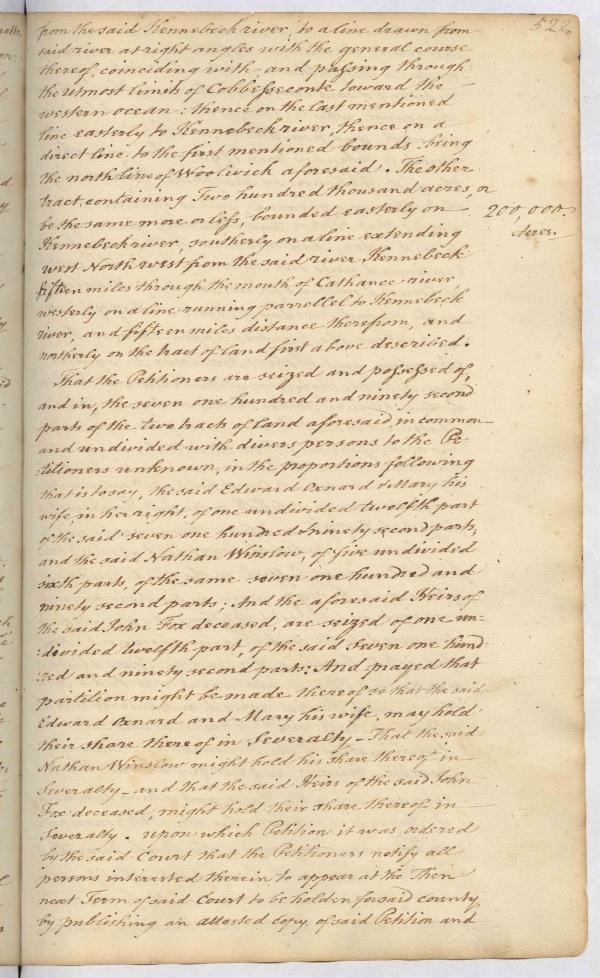 522.
from the said Kennebeck river, to a line drawn from
said river at right angles with the general course
thereof, coinciding with and passing through
the utmost limits of Cobbesseconte toward the
western ocean: thence on the last mentioned
line easterly to Kennebeck river, thence on a
direct line to the first mentioned bounds being
the north line of Woolwich aforesaid. The other
tract, containing Two hundred thousand acres, or
be the same more or less, bounded easterly on
200,000.
Acres.
Kennebeck river, southerly on a line extending
west North west from the said river Kennebeck
fifteen miles through the mouth of Cathance river,
westerly on a line running parrellel to Kennebeck
river, and fifteen miles distance therefrom, and
northerly on the tract of land first above described.
That the Petitioners are seized and possessed of,
and in, the seven one hundred and ninety second
parts of the two tracts of land aforesaid, in common
and undivided with divers persons to the Pe-
:titioners unknown, in the proportions following
that is to say, the said Edward Oxnard & Mary his
wife, in her right, of one undivided twelfth part
of the said seven one hundred & ninety second parts,
and the said Nathan Winslow, of five undivided
sixth parts, of the same seven one hundred and
ninety second parts; And the aforesaid Heirs of
the said John Fox deceased, are seized of one un-
:divided twelfth part, of the said seven one hund-
:red and ninety second parts: And prayed that
partition might be made thereof so that the said
Edward Oxnard and Mary his wife, may hold
their share thereof in Severalty - That the said
Nathan Winslow might hold his share thereof in
Severalty - and that the said Heirs of the said John
Fox deceased, might hold their share thereof in
Severalty. upon which Petition it was ordered
by the said Court that the Petitioners notify all
persons interested therein to appear at the Then
next Term of said Court to be holden for said county,
by publishing an attested copy of said Petition and